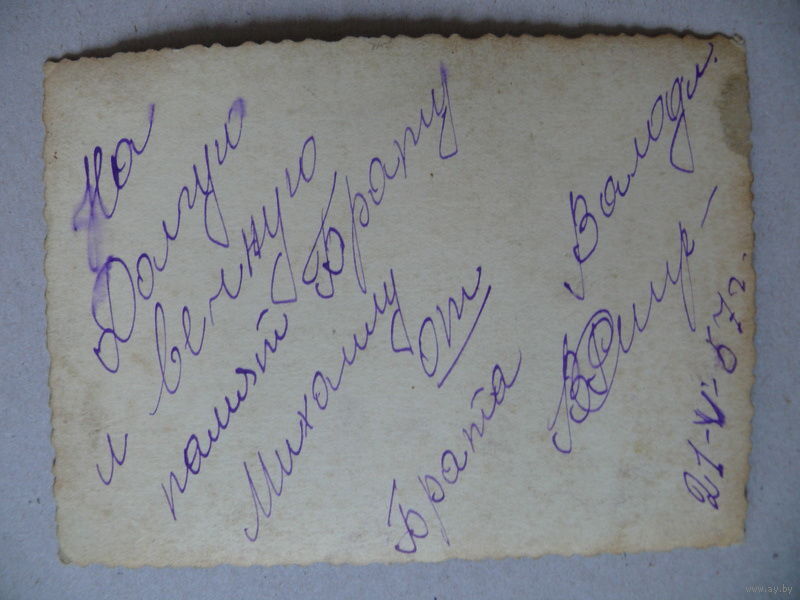 На
Долгую
и вечную
памят Брату
Михаилу
от
Брата Володи.
21-V-57г.
www.ay.by